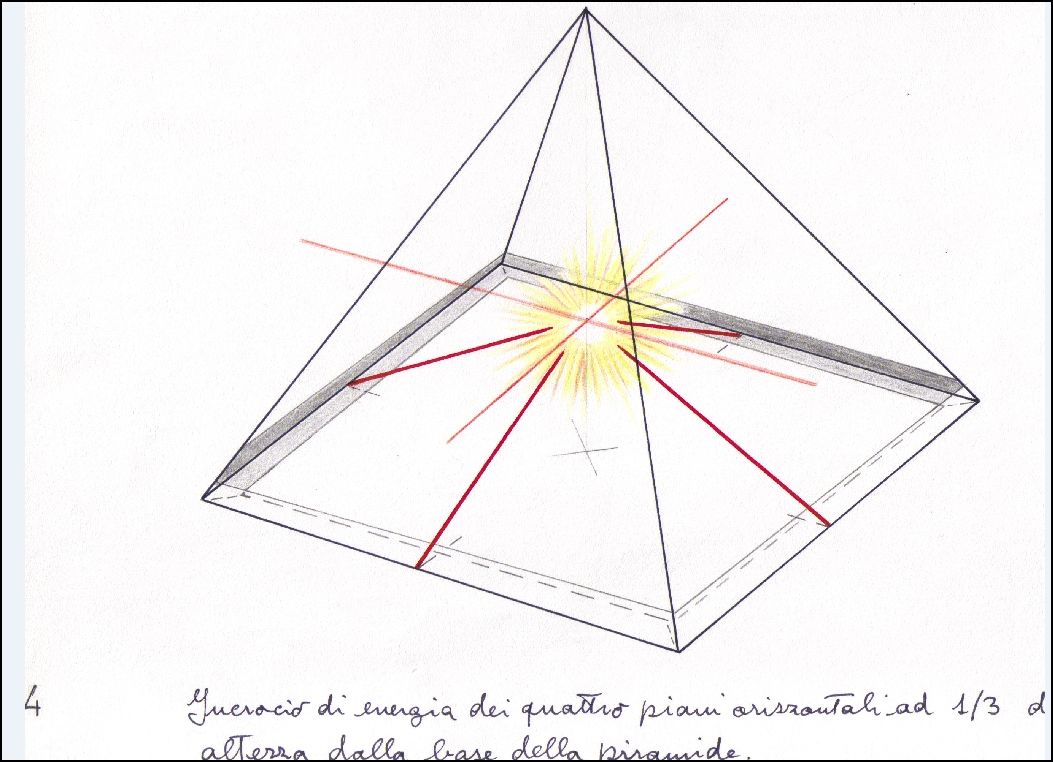 4
Incrocio di energia dei quattro piani orizzontali ad 1/3 d
altezza dalla base della piramide.